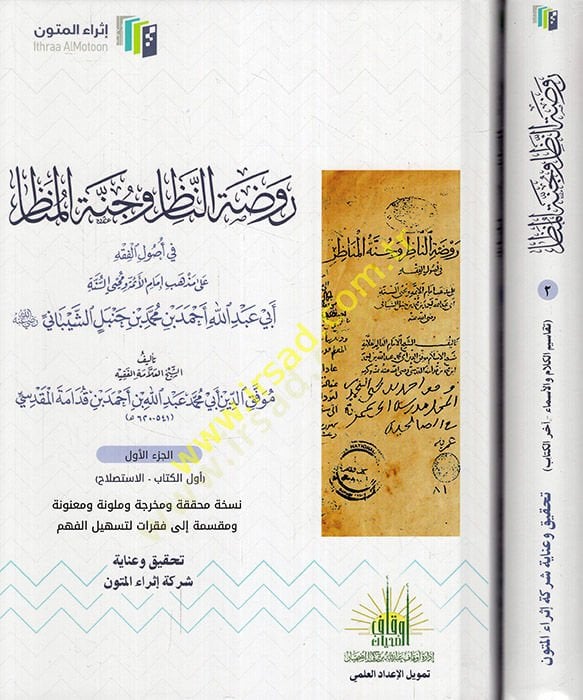 إثراء المتون
Ithraa AlMotoon
روضة الناظر وجنة المناظر
في أصول الفقه
على مذهب إمام الأئمة ومحيي السنة
أبي عبد الله أحمد بن محمد بن حنبل الشيباني رضي الله عنه
تأليف
الشيخ العلامة الفقيه
موفق الدين أبي محمد عبد الله بن أحمد بن قدامة المقدسي
(٥٤١ - ٦٢٠ هـ)
الجزء الأول
(أول الكتاب - الاستصلاح)
نسخة محققة ومخرجة وملونة ومعنونة
ومقسمة إلى فقرات لتسهيل الفهم
تحقيق وعناية
شركة إثراء المتون
روضة الناظر وجنة المناظر
في أصول الفقه
NATIONAL
٨١
أوقاف
الضحيان
تمويل الإعداد العلمي
www.irsad.com.tr
روضة الناظر وجنة المناظر
٢
(تقاسيم الكلام والأسماء - آخر الكتاب)
تحقيق وعناية شركة إثراء المتون